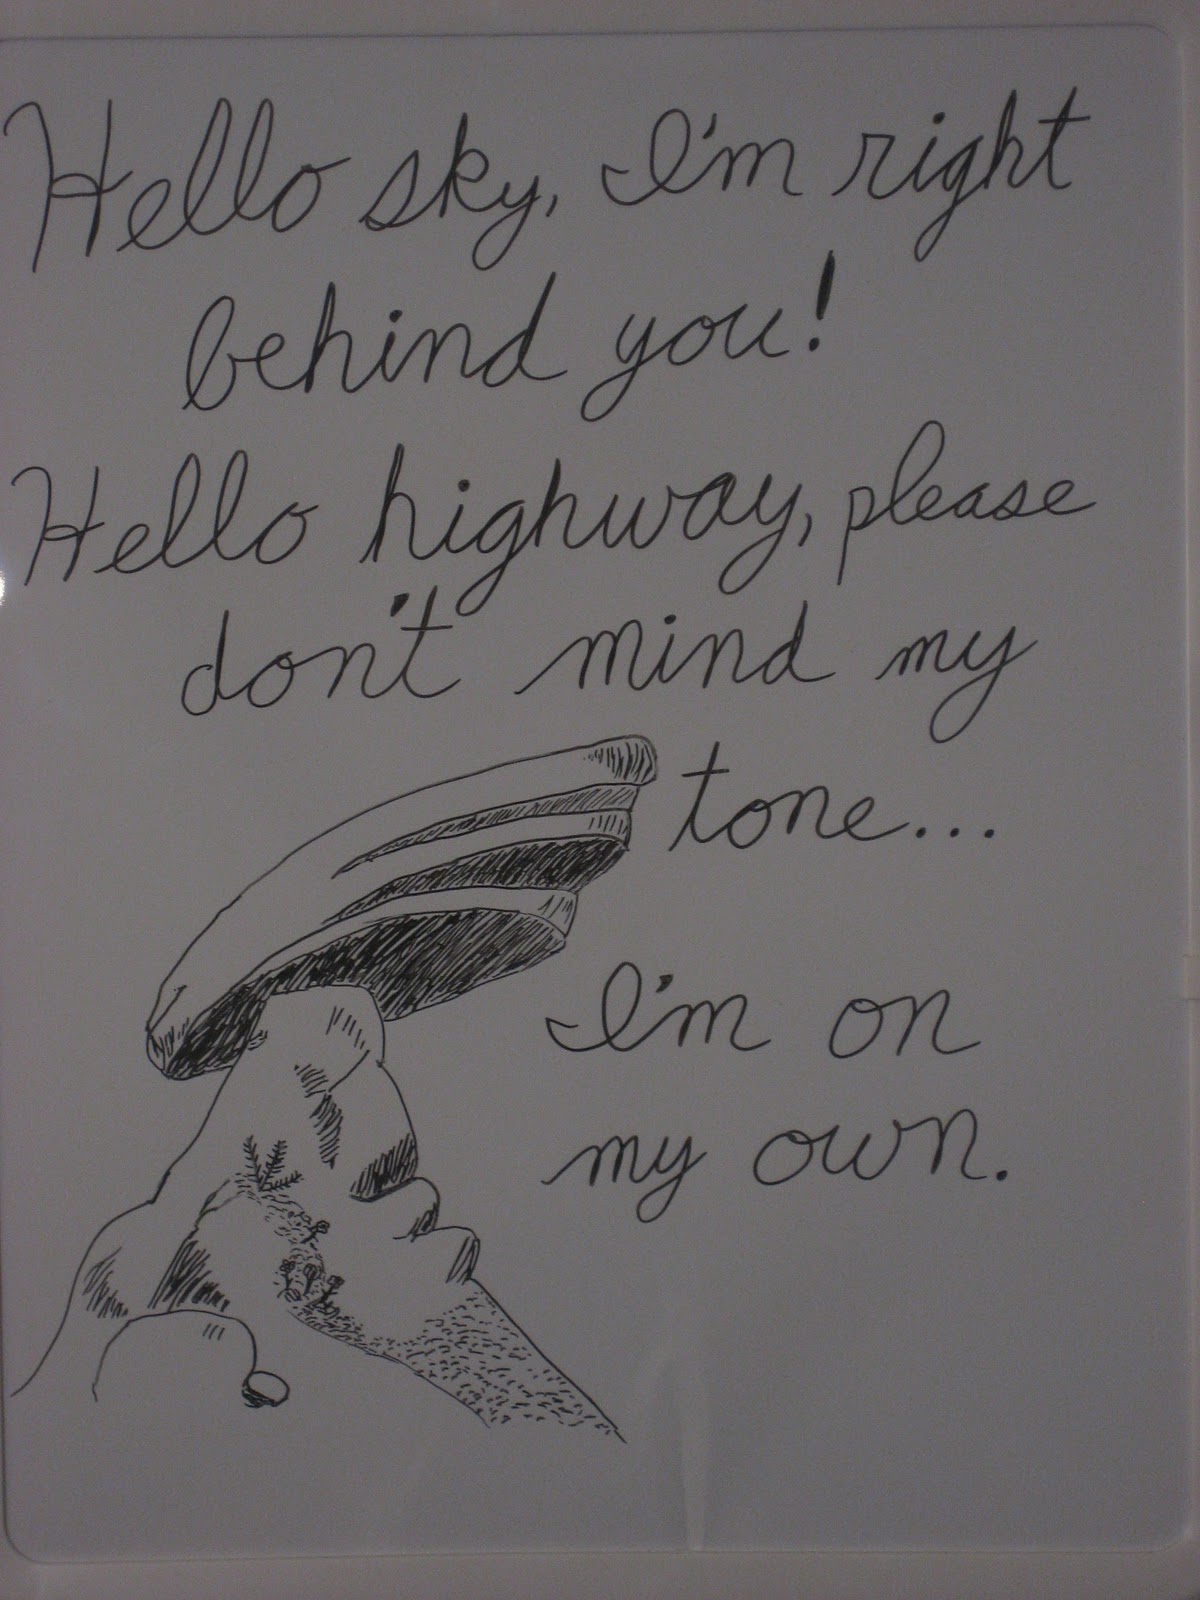 Hello sky, I'm right
behind you!
Hello highway, please
don't mind my
tone...
I'm on
my own.